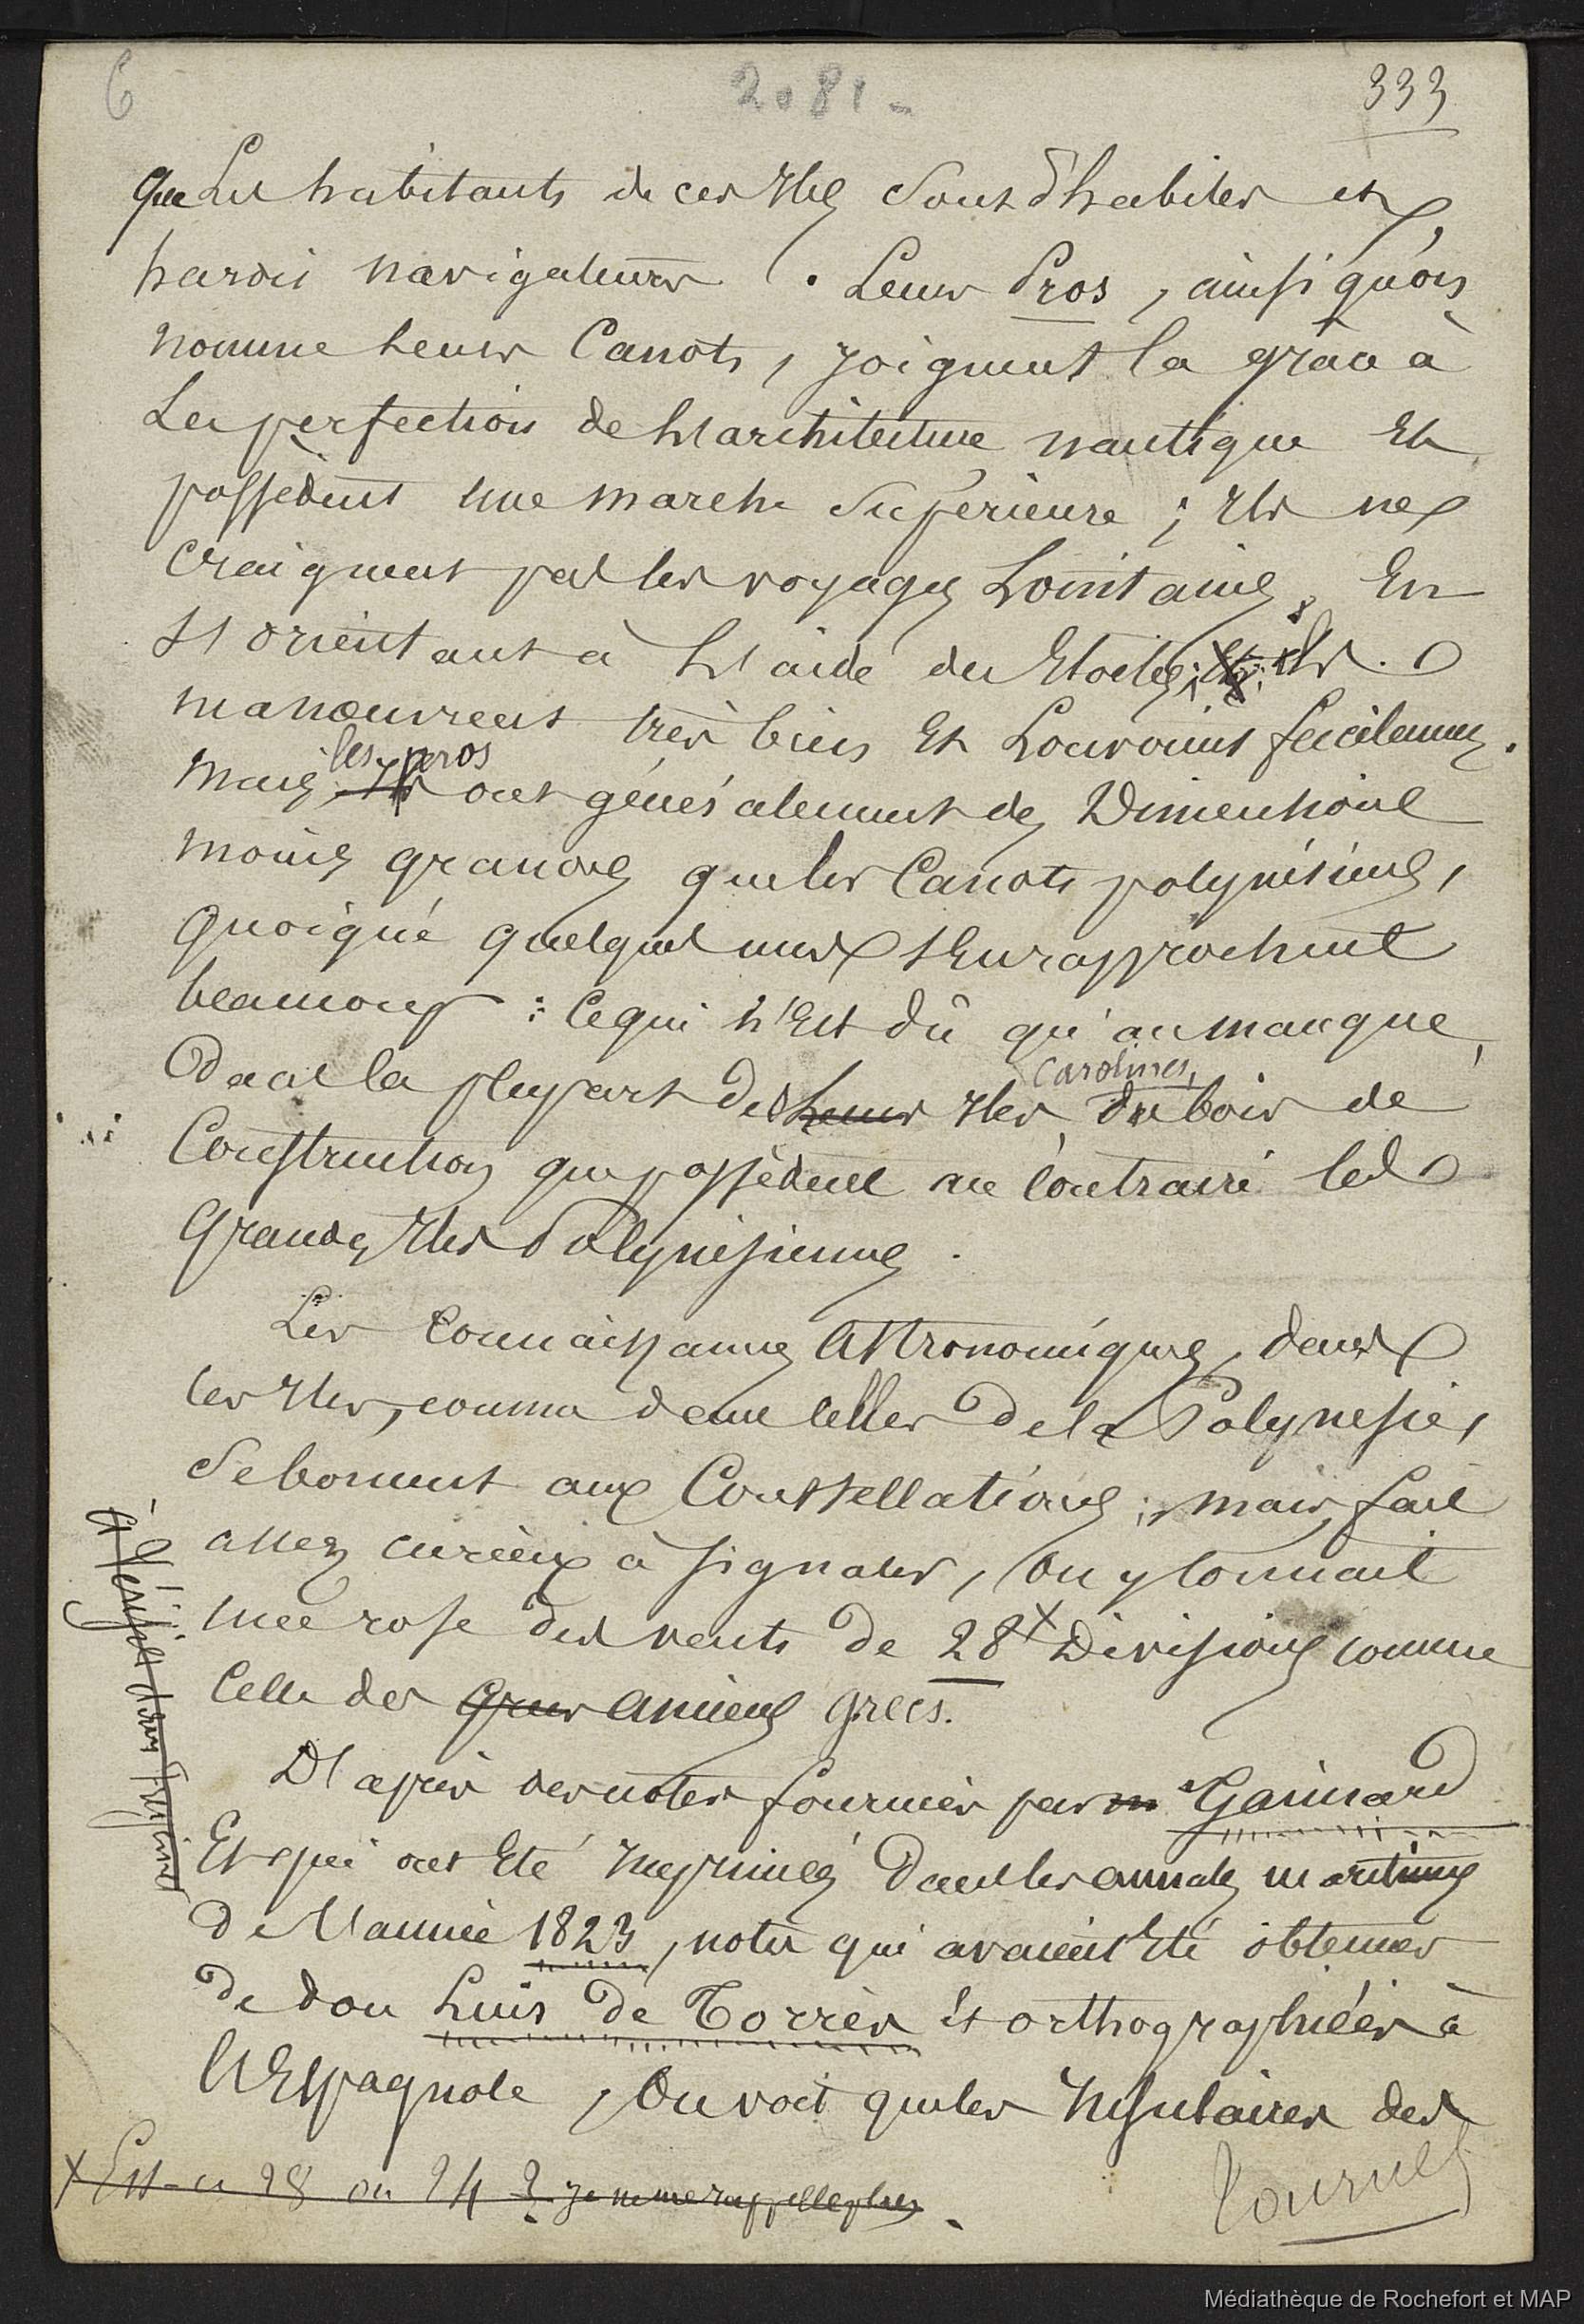 6 2.81 - 333
que Les habitants de ces Iles sont d'habiles et
hardis navigateurs . Leurs Pros, ainsi qu'on
nomme leurs Canots, joignent la grâce à
La perfection de L'architecture nautique Et
possèdent une marche supérieure ; Ils ne
craignent pas les voyages Lointains, En
s'orientant à L'aide des Etoiles; Ils
manœuvrent très bien Et Louvoient facilement.
les pros
Mais Ils ont généralement des Dimentions
moins grandes que les Canots polynésiens,
quoique quelques uns s'En rapprochent
beaucoup : Ce qui n'Est dû qu'au manque,
Carolines,
Dans la plupart des Leurs Iles, du bois de
Construction que possèdent au contraire les
Grandes Iles Polynésiennes .
Les Connaissances Astronomiques, dans
ces Iles, comme dans celles de la Polynésie,
se bornent aux Constellations ; mais, fait
assez curieux à signaler, On y connait
une rose des vents de 28 x Divisions comme
Celle des Grecs anciens grecs.
D'après des notes fournies par m Gaimard
Et qui ont Eté Imprimées Dans les annales maritimes
de L'année 1823, notes qui avaient Eté obtenues
de don Luis de Torrès Et orthographiées à
L'Espagnole, On voit que les Insulaires des
x Est-ce 28 ou 24 ? Je ne me rappelle plus.
Tournez